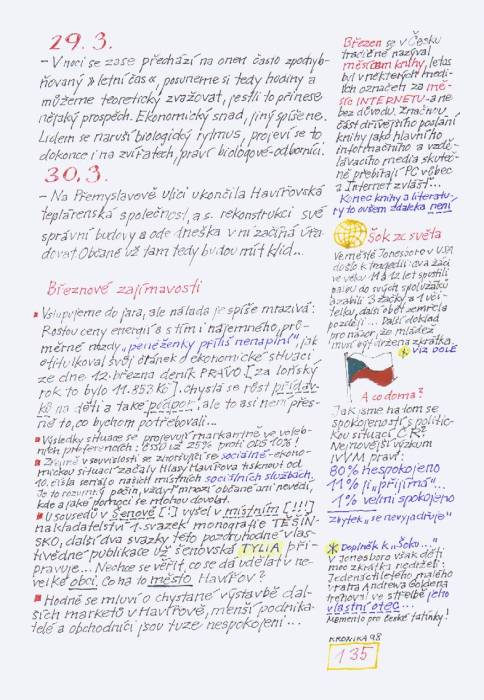 29. 3.
- V noci se zase přechází na onen často zpochyb-
ňovaný »letní čas«, posuneme si tedy hodiny a
můžeme teoreticky zvažovat, jestli to přinese
nějaký prospěch. Ekonomický snad, jiný spíše ne.
Lidem se naruší biologický rytmus, projeví se to
dokonce i na zvířatech, praví biologové-odborníci.
30. 3.
- Na Přemyslovově ulici ukončila Havířovská
teplárenská společnost, a.s. rekonstrukci své
správní budovy a ode dneška v ní začíná úřa-
dovat. Občané už tam tedy budou mít klid...
Březnové zajímavosti
Vstupujeme do jara, ale nálada je spíše mrazivá:
Rostou ceny energií a s tím i nájemného, prů-
měrné mzdy „peněženky příliš nenaplní" jak
otitulkoval svůj článek o ekonomické situaci
ze dne 12. března deník PRÁVO [za loňský
rok to bylo 11.853 Kč]. Chystá se růst přídav-
ků na děti a také podpor, ale to asi není přes-
ně to, co bychom potřebovali...
Výsledky situace se projevují markantně ve voleb-
ních preferencích: ČSSD už 25% proti ODS 10%!
Zřejmě v souvislosti se zhoršující se sociálně-ekono-
mickou situací začaly Hlasy Havířova tisknout od
10. čísla seriál o našich místních sociálních službách.
Je to rozumný počin, vždyť mnozí občané ani nevědí,
kde a jaké pomoci se mohou dovolat.
U sousedů v Šenově [!] vyšel v místním [!!!]
nakladatelství 1. svazek monografie TĚŠÍN-
SKO, další dva svazky této pozoruhodné vlas-
tivědné publikace už šenovská TYLIA při-
pravuje... Nechce se věřit, co se dá udělat v ne-
velké obci. Co na to město Havířov?
Hodně se mluví o chystané výstavbě dal-
ších marketů v Havířově, menší podnika-
telé a obchodníci jsou tuze nespokojeni...
Březen se v Česku
tradičně nazýval
měsícem knihy, letos
byl v některých medi-
ích označen za mě-
síc INTERNETU - a ne
bez důvodu. Značnou
část dřívějšího poslání
knihy jako hlavního
informačního a vzdě-
lávacího media skuteč-
ně přebírají PC vůbec
a Internet zvlášť...
Konec knihy a literatu-
ry to ovšem zdaleka není
Šok ze světa
Ve městě Jonesboro v USA
došlo k tragédii: dva žáci
ve věku 11 a 12 let spustili
palbu do svých spolužáků
a zabili 3 žačky a 1 uči-
telku, další oběť zemřela
později... Další doklad
pro názor, že mládež
musí být držena zkrátka.
VIZ DOLE
A co doma?
Jak jsme na tom se
spokojeností s politic-
kou situací ČR?
Nejnovější výzkum
IVVM praví:
80% nespokojeno
11% ji „přijímá"...
1% velmi spokojeno
Zbytek „se nevyjadřuje"
Doplněk k „Šoku..."
V Jonesboro však děti
moc zkrátka nedrželi:
Jedenáctiletého malého
vraha Andrewa Goldena
trénoval ve střelbě jeho
vlastní otec...
Memento pro české tatínky!
KRONIKA 98
135